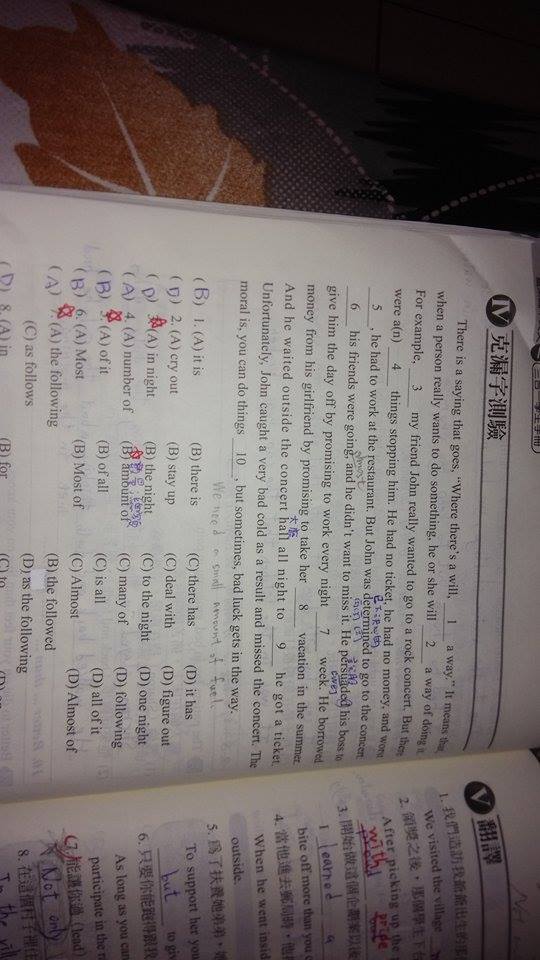 IV 克漏字測驗
There is a saying that goes, "Where there's a will, 1 a way." It means that
when a person really wants to do something, he or she will 2 a way of doing it.
For example, 3 my friend John really wanted to go to a rock concert. But there
were a(n) 4 things stopping him: He had no ticket, he had no money, and worst
5 , he had to work at the restaurant. But John was determined to go to the concert.
almost
6 his friends were going, and he didn't want to miss it. He persuaded his boss to
give him the day off by promising to work every night 7 week. He borrowed
money from his girlfriend by promising to take her 8 vacation in the summer.
And he waited outside the concert hall all night to 9 he got a ticket.
Unfortunately, John caught a very bad cold as a result and missed the concert. The
moral is, you can do things 10 , but sometimes, bad luck gets in the way.
We need a small amount of fuel.
( B ) 1. (A) it is (B) there is (C) there has (D) it has
( D ) 2. (A) cry out (B) stay up (C) deal with (D) figure out
( D ) 3. (A) in night (B) the night (C) to the night (D) one night
( A ) 4. (A) number of (B) amount of (C) many of (D) following
( B ) 5. (A) of it (B) of all (C) is all (D) all of it
( B ) 6. (A) Most (B) Most of (C) Almost (D) Almost of
( A ) 7. (A) the following (B) the followed
(C) as follows (D) as the following
( D ) 8. (A) in (B) for (C) to (D) on
V 翻譯
1. 我們造訪我爺爺出生的那
We visited the village
2. 領獎之後，那個學生下台
After picking up the
with pride
3. 開始做這個企劃案以後
I learned a
bite off more than you c
4. 當他進去郵局時，他
When he went insid
outside.
5. 為了扶養她弟弟，她
To support her you
but to giv
6. 只要你能跑得跟我
As long as you can
participate in the r
能讓你通 (lead)
Not only
8. 在這個村子裡
In the vill